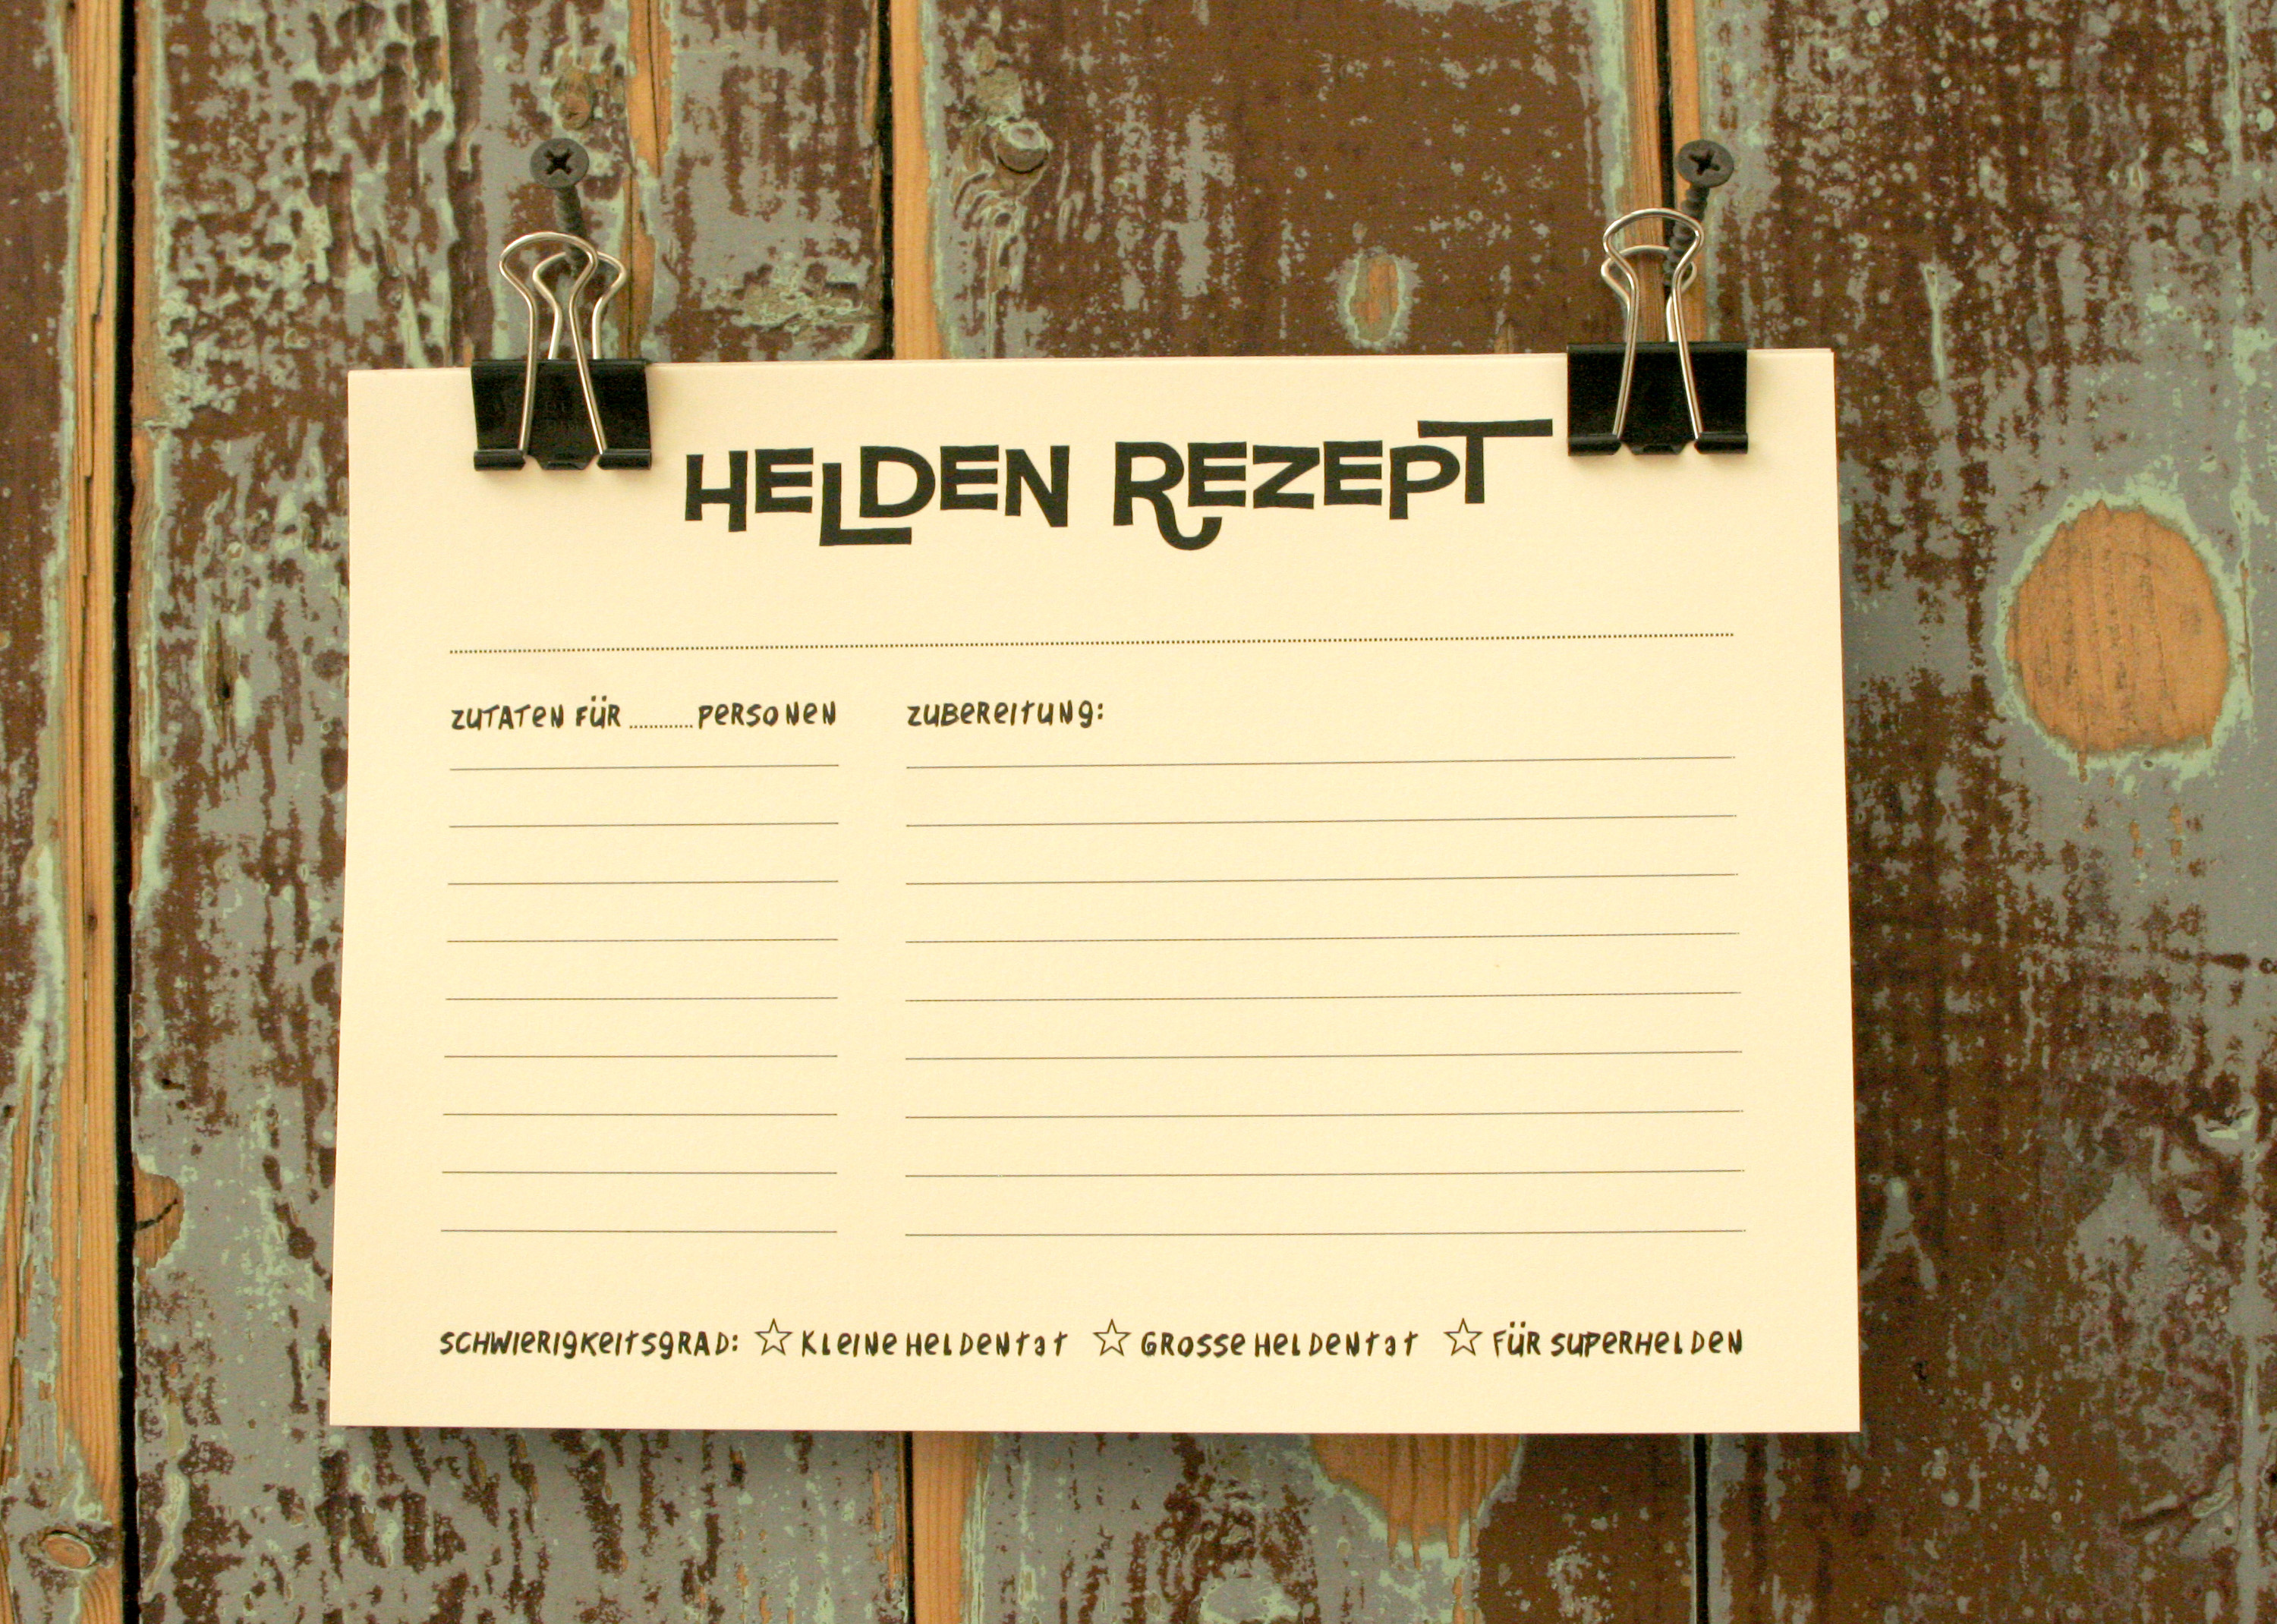 HELDEN REZEPT
ZUTATEN FÜR .......... PERSONEN
ZUBEREITUNG:
SCHWIERIGKEITSGRAD: ☆ KLEINE HELDENTAT ☆ GROSSE HELDENTAT ☆ FÜR SUPERHELDEN